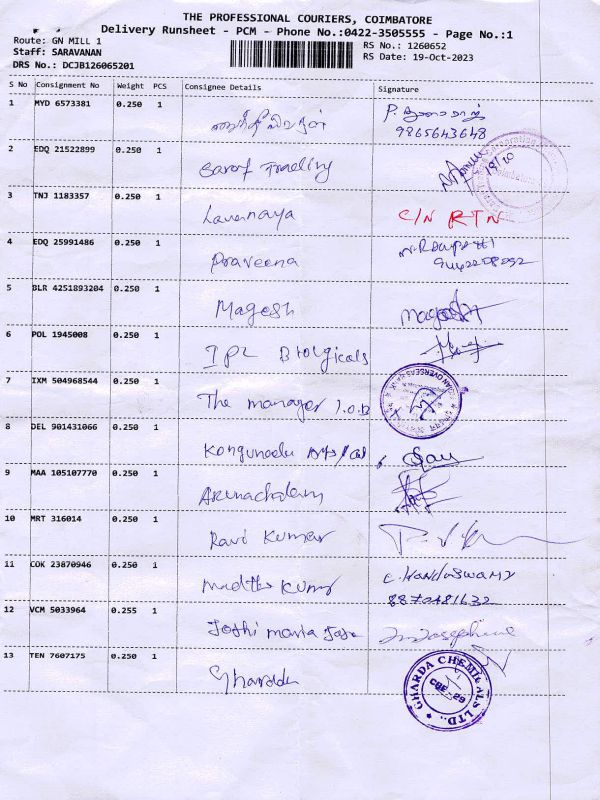 THE PROFESSIONAL COURIERS, COIMBATORE
Delivery Runsheet - PCM - Phone No.:0422-3505555 - Page No.:1
Route: GN MILL 1
RS No.: 1260652
Staff: SARAVANAN
RS Date: 19-Oct-2023
DRS No.: DCJB126065201
S No Consignment No Weight PCS Consignee Details Signature
1 MYD 6573381 0.250 1
9865643648
2 EDQ 21522899 0.250 1 Trading
19/10
3 TNJ 1183357 0.250 1 Lavannaya C/N RTN
4 EDQ 25991486 0.250 1 Praveena
5 BLR 4251893204 0.250 1 Magesh
6 POL 1945008 0.250 1 IPL Biolgicals
7 IXM 504968544 0.250 1 The manager I.O.B
8 DEL 901431066 0.250 1 Kongunadu Arts/
9 MAA 105107770 0.250 1 Arunachalam
10 MRT 316014 0.250 1 Ravi Kumar
11 COK 23870946 0.250 1 Kumar C. Kandaswamy
8870481632
12 VCM 5033964 0.255 1 Joshi maria Jose Josephine
13 TEN 7607175 0.250 1 Gharda
GHARDA CHEMICALS LTD.,
CBE-29